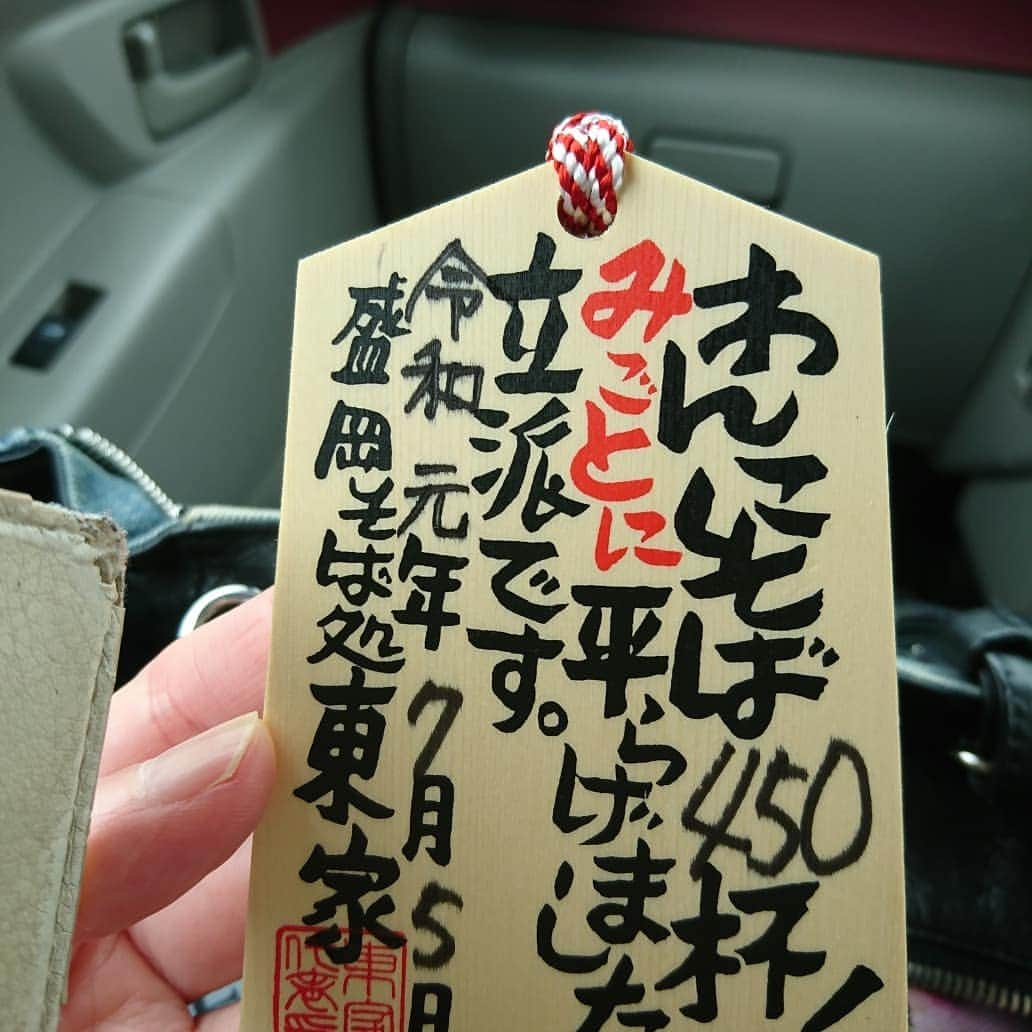 わんこそば450杯!
みごとに平らげました
立派です。
令和元年7月5日
盛岡そば処東家